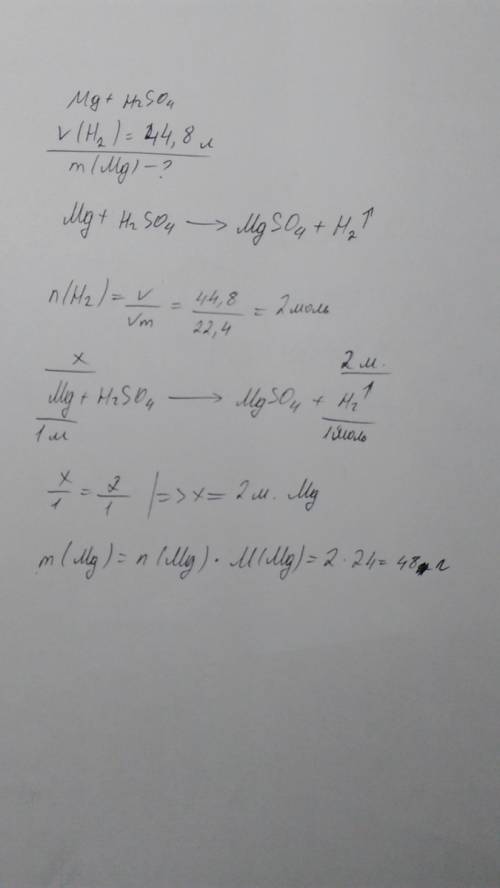 Mg + H₂SO₄
V(H₂) = 44,8 л
m(Mg) - ?
Mg + H₂SO₄ ⟶ MgSO₄ + H₂↑
n(H₂) = V/Vm = 44,8/22,4 = 2 моль
x 2 м.
Mg + H₂SO₄ ⟶ MgSO₄ + H₂↑
1 м 1 моль
x/1 = 2/1 |=> x = 2 м. Mg
m(Mg) = n(Mg) · M(Mg) = 2 · 24 = 48 г